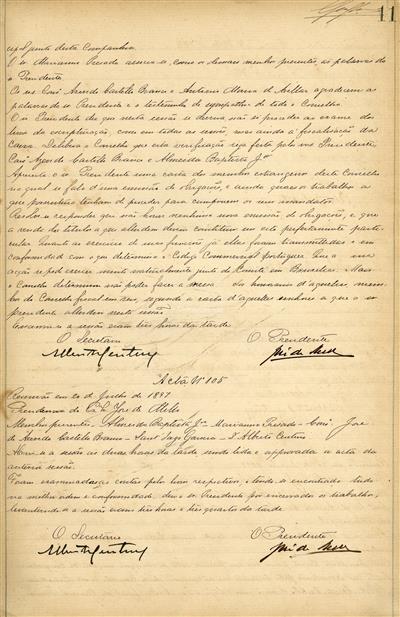 11
O sr Marianno Presado associa-se, como os demais membros presentes, ás palavras do
sr Presidente.
Os srs Azevedo Castello Branco e Antonio Maria de agradecem as
palavras do sr Presidente e o testemunho de sympathia de todo o Conselho.
O sr Presidente diz que nesta sessão se deveria não só proceder ao exame dos
livros da escripturação, como em todas as sessões, mas ainda á fiscalisação da
Caixa. Delibera o Conselho que esta verificação seja feita pelos srs Presidente,
Azevedo Castello Branco e Almeida Baptista Jor
Apresenta o sr Presidente uma carta dos membros extrangeiros deste Conselho
na qual se fala d'uma emissão de obrigações, e ainda quaes os trabalhos a
que porventura tenham de proceder para cumprirem os seus mandatos.
Resolve-se responder que não houve nenhuma nova emissão de obrigações, e que
a venda dos titulos a que alludem devia constituir um acto perfeitamente parti-
cular. Quanto ao exercicio de suas funcções já ellas foram transmittidas e em
conformidade com o que determina o Codigo Commercial portuguez. Que a sua
acção se póde exercer muito naturalmente junto do Comité em Bruxellas. Mas
o Conselho determinou não poder fazer a d'aquelles mem-
bros do Conselho fiscal em seus, segundo a carta d'aquelles senhores a que o sr
presidente alludiu nesta sessão.
Encerrou-se a sessão eram tres horas da tarde.
O Secretario
O Presidente
José de Mello
Acta Nº 105
Sessão em 20 de Julho de 1897
Presidencia do José de Mello
Membros presentes: Almeida Baptista Jor Marianno Presado - Cons. José
de Azevedo Castello Branco - Garcia - D. Alberto Centeno
Abriu-se a sessão ás duas horas da tarde sendo lida e approvada a acta da
anterior sessão.
Foram examinadas as contas pelos livros respectivos, e tendo-se encontrado tudo
na melhor ordem e conformidade, deu o sr Presidente por encerrados os trabalhos,
levantando-se a sessão eram tres horas e tres quartos da tarde.
O Secretario
O Presidente
José de Mello